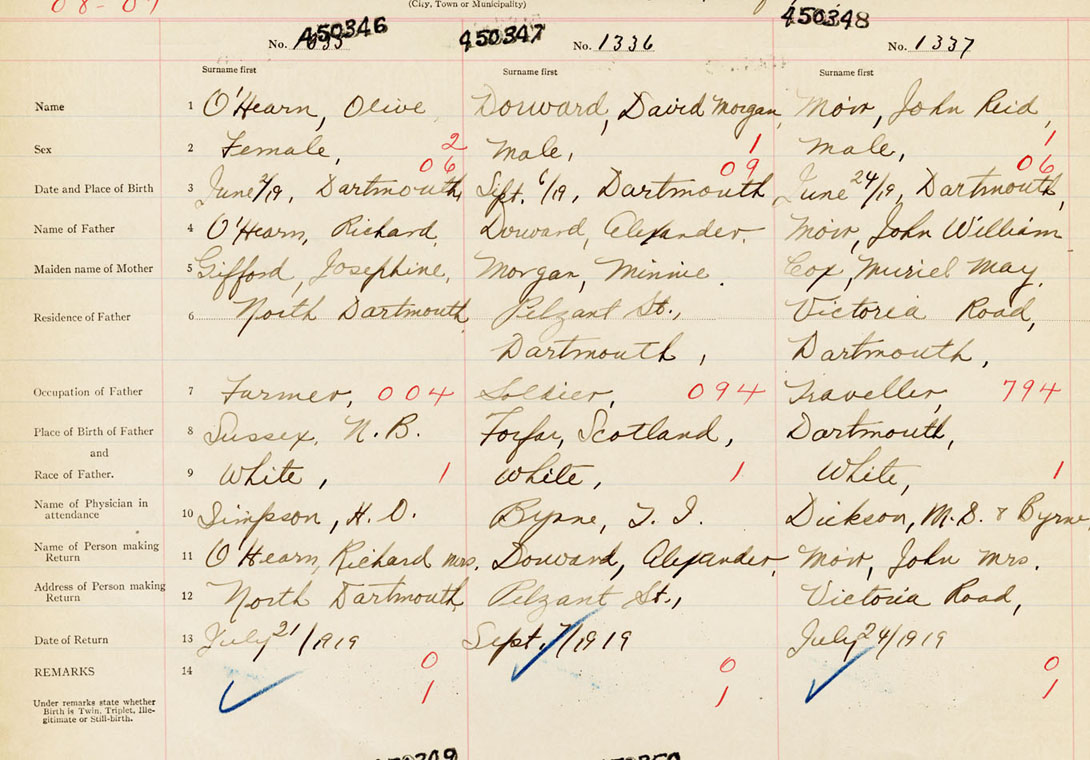 08-07
(City, Town or Municipality)
450346 450347 450348
No. No. 1336 No. 1337
Surname first Surname first Surname first
Name 1 O'Hearn, Olive Douward, David Morgan, Moir, John Reid,
Sex 2 Female, 2 Male, 1 Male, 1
06 09 06
Date and Place of Birth 3 June 2/19, Dartmouth, Sept. 6/19, Dartmouth June 24/19, Dartmouth,
Name of Father 4 O'Hearn, Richard, Douward, Alexander. Moir, John William
Maiden name of Mother 5 Gifford, Josephine, Morgan, Minnie. Cox, Muriel May.
Residence of Father 6 North Dartmouth Pelzant St., Victoria Road,
Dartmouth, Dartmouth,
Occupation of Father 7 Farmer, 004 Soldier, 094 Traveller, 794
Place of Birth of Father 8 Sussex, N.B. Forfar, Scotland, Dartmouth,
and
Race of Father. 9 White, 1 White, 1 White, 1
Name of Physician in
attendance 10 Simpson, H.O. Byrne, T.I. Dickson, M.S. & Byrne
Name of Person making
Return 11 O'Hearn, Richard Mrs. Douward, Alexander, Moir, John Mrs.
Address of Person making
Return 12 North Dartmouth, Pelzant St., Victoria Road,
Date of Return 13 July 21/1919 Sept. 7/1919 July 24/1919
REMARKS 14 0 0 0
1 1 1
Under remarks state whether
Birth is Twin, Triplet, Ille-
gitimate or Still-birth.